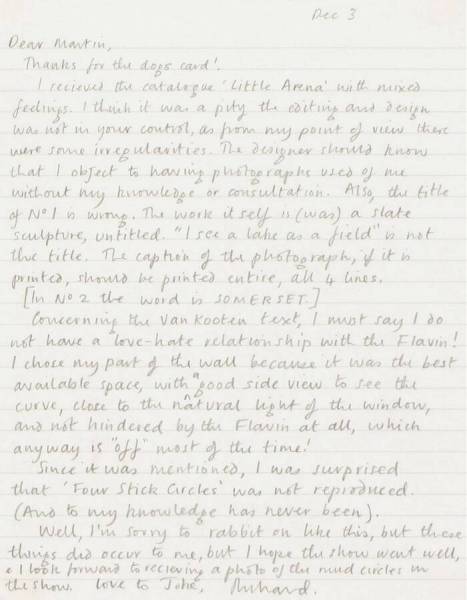 Dec 3
Dear Martin,
Thanks for the dogs card!
I recieved the catalogue 'Little Arena' with mixed
feelings. I think it was a pity the editing and design
was not in your control, as from my point of view there
were some irregularities. The designer should know
that I object to having photographs used of me
without my knowledge or consultation. Also, the title
of Nº 1 is wrong. The work itself is (was) a slate
sculpture, untitled. "I see a lake as a field" is not
the title. The caption of the photograph, if it is
printed, should be printed entire, all 4 lines.
[In Nº 2 the word is SOMERSET.]
Concerning the Van Kooten text, I must say I do
not have a "love-hate relationship with the Flavin!
I chose my part of the wall because it was the best
available space, with a good side view to see the
curve, close to the natural light of the window,
and not hindered by the Flavin at all, which
anyway is "off" most of the time!
Since it was mentioned, I was surprised
that 'Four Stick Circles' was not reproduced.
(And to my knowledge has never been).
Well, I'm sorry to rabbit on like this, but these
things did occur to me, but I hope the show went well,
& I look forward to recieving a photo of the mud circles in
the show. love to Joke, Richard.